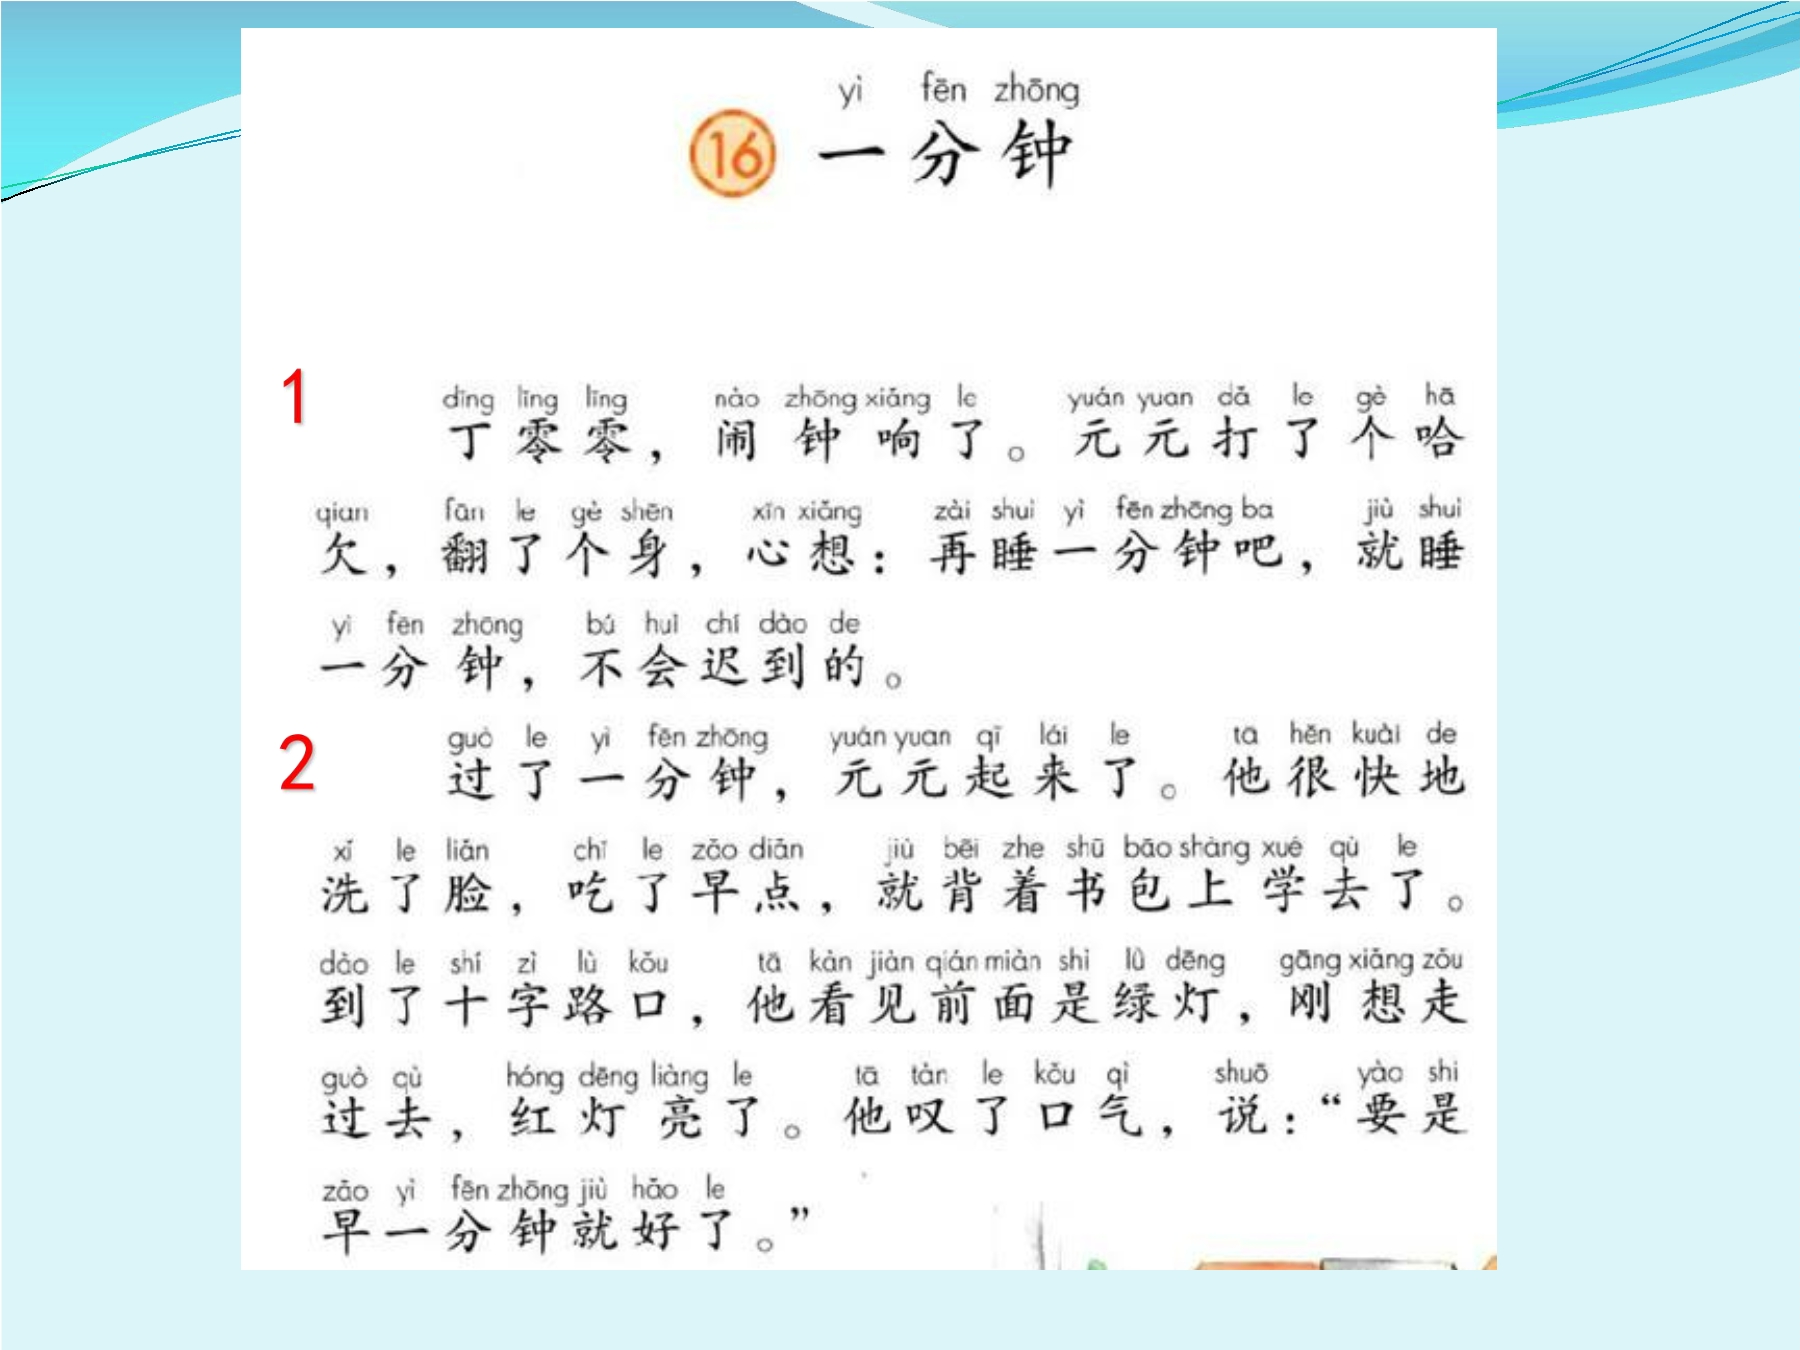 yì fēn zhōng
16 一分钟
1
dīng líng líng nào zhōng xiǎng le yuán yuan dǎ le gè hā
丁零零，闹钟响了。元元打了个哈
qian fān le gè shēn xīn xiǎng zài shuì yì fēn zhōng ba jiù shuì
欠，翻了个身，心想：再睡一分钟吧，就睡
yì fēn zhōng bú huì chí dào de
一分钟，不会迟到的。
2
guò le yì fēn zhōng yuán yuan qǐ lái le tā hěn kuài de
过了一分钟，元元起来了。他很快地
xǐ le liǎn chī le zǎo diǎn jiù bēi zhe shū bāo shàng xué qù le
洗了脸，吃了早点，就背着书包上学去了。
dào le shí zì lù kǒu tā kàn jiàn qián miàn shì lǜ dēng gāng xiǎng zǒu
到了十字路口，他看见前面是绿灯，刚想走
guò qù hóng dēng liàng le tā tàn le kǒu qì shuō yào shi
过去，红灯亮了。他叹了口气，说：“要是
zǎo yì fēn zhōng jiù hǎo le
早一分钟就好了。”